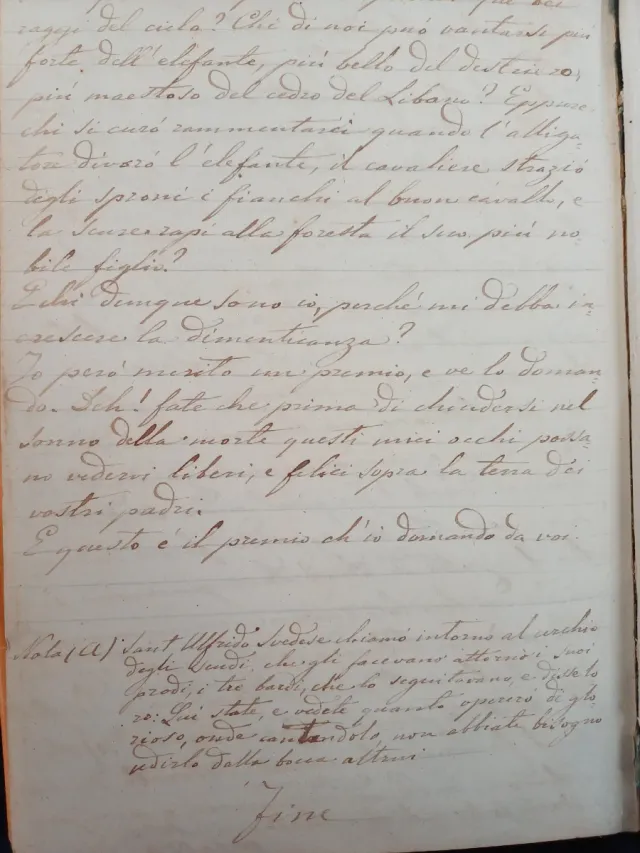 raggi del cielo? Chi di noi può vantarsi più
forte dell'elefante, più bello del destriero,
più maestoso del cedro del Libano? Eppure
chi si curò rammentarci quando l'alliga-
tore divorò l'elefante, il cavaliere straziò
degli sproni i fianchi al buon cavallo, e
la scure rapì alla foresta il suo più no-
bile figlio?
E chi dunque sono io, perchè mi debba in-
crescere la dimenticanza?
Io però merito un premio, e ve lo doman-
do. Deh! fate che prima di chiudersi nel
sonno della morte questi miei occhi possa-
no vedervi liberi, e felici sopra la terra dei
vostri padri.
E questo è il premio ch'io domando da voi.
Nota (A) Sant Ulfrido Svedese chiamò intorno al
degli scudi, che gli facevano attorno i suoi
prodi, i tre bardi, che lo seguitavano, e disse lo-
ro: Qui state, e vedete quanto opererò di glo-
rioso, onde cantandolo, non abbiate bisogno
udirlo dalla bocca altrui
Fine